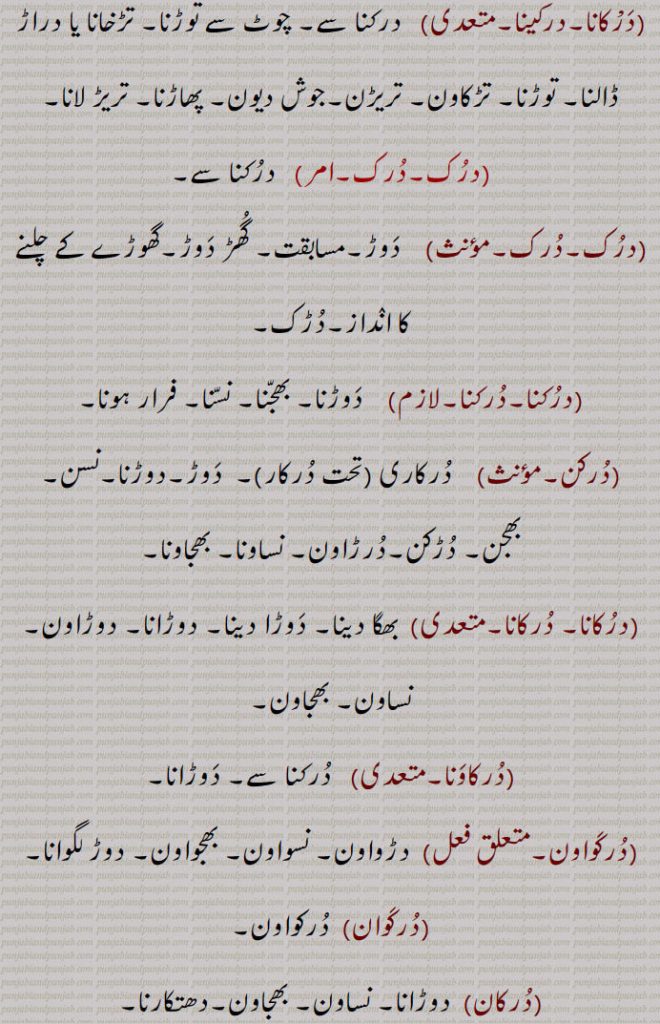 (دَرْکانا۔درکینا۔متعدی) درکنا سے۔ چوٹ سے توڑنا۔ تڑخانا یا دراڑ
ڈالنا۔ توڑنا۔ تڑکاون۔ تریڑن۔جوش دیون۔ پھاڑنا۔ تریڑ لانا۔
(درُک۔دُرک۔امر) درُکنا سے۔
(درُک۔دُرک۔مؤنث) دَوڑ۔مسابقت۔ گُھڑ دَوڑ۔گھوڑے کے چلنے
کا انْداز۔دُڑک۔
(درُکنا۔دُرکنا۔لازم) دَوڑنا۔ بھجّنا۔ نسّنا۔ فرار ہونا۔
(دُرکن۔مؤنث) دُرکاری (تحت دُرکار)۔ دَوڑ۔دوڑنا۔نسن۔
بھجن۔ دُڑکن۔دُرڑاون۔ نساونا۔ بھجاونا۔
(درُکانا۔ دُرکانا۔متعدی) بھگا دینا۔ دَوڑا دینا۔ دوڑانا۔ دوڑاون۔
نساون۔ بھجاون۔
(دُرکاؤنا۔متعدی) دُرکنا سے۔ دَوڑانا۔
(دُرکَواون۔متعلق فعل) دڑواون۔ نسواون۔ بھجواون۔ دوڑ لگوانا۔
(دُرکَوان) دُرکواون۔
(دُرکان) دوڑانا۔ نساون۔ بھجاون۔دھتکارنا۔